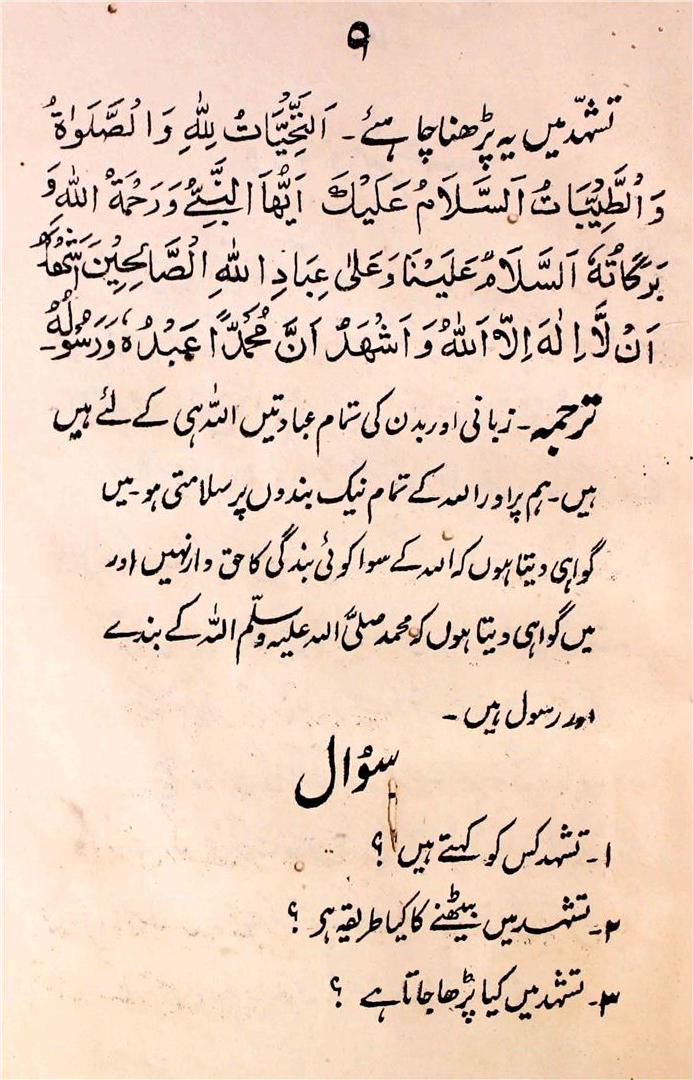 ۹
تشہّد میں یہ پڑھنا چاہئے۔ اَلتَّحِیَّاتُ لِلّٰہِ وَالصَّلَوٰۃُ
وَالطَّیِّبَاتُ اَلسَّلَامُ عَلَیْكَ اَیُّھَا النَّبِیُّ وَرَحْمَۃُ اللّٰہِ وَ
بَرَکَاتُہٗ اَلسَّلَامُ عَلَیْنَا وَعَلٰی عِبَادِ اللّٰہِ الصَّالِحِیْنَ اَشْھَدُ
اَنْ لَّا اِلٰہَ اِلَّا اللّٰہُ وَاَشْھَدُ اَنَّ مُحَمَّدًا عَبْدُہٗ وَرَسُوْلُہٗ۔
ترجمہ۔ زبانی اور بدن کی تمام عبادتیں اللہ ہی کے لئے ہیں
ہیں۔ ہم پر اور اللہ کے تمام نیک بندوں پر سلامتی ہو۔ میں
گواہی دیتا ہوں کہ اللہ کے سوا کوئی بندگی کا حق دار نہیں اور
میں گواہی دیتا ہوں کہ محمد صلیَّ اللہ علیہ وسلّم اللہ کے بندے
اور رسول ہیں۔
سوُال
۱۔ تشہد کس کو کہتے ہیں؟
۲۔ تشہد میں بیٹھنے کا کیا طریقہ ہر؟
۳۔ تشہد میں کیا پڑھا جاتا ہے؟